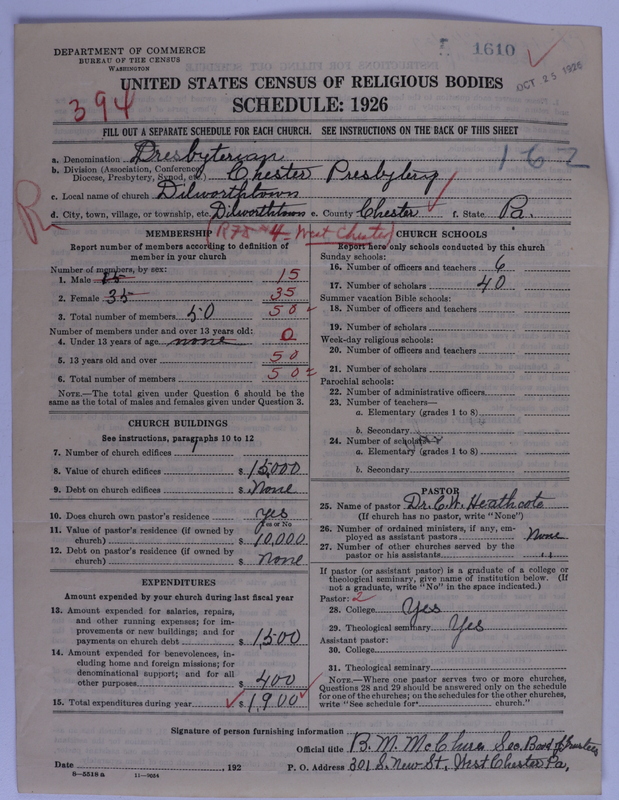 1610
OCT 25 1926
DEPARTMENT OF COMMERCE
BUREAU OF THE CENSUS
WASHINGTON
UNITED STATES CENSUS OF RELIGIOUS BODIES
394
SCHEDULE: 1926
FILL OUT A SEPARATE SCHEDULE FOR EACH CHURCH. SEE INSTRUCTIONS ON THE BACK OF THIS SHEET
162
a. Denomination Presbyterian
b. Division (Association, Conference, Diocese, Presbytery, Synod, etc.) Chester Presbytery
c. Local name of church Dilworthtown
d. City, town, village, or township, etc. Dilworthtown e. County Chester f. State Pa.
R
#4 West Chester
MEMBERSHIP
Report number of members according to definition of
member in your church
Number of members, by sex:
1. Male 15
2. Female 35 35
3. Total number of members 50 50
Number of members under and over 13 years old:
4. Under 13 years of age none 0
5. 13 years old and over 50
6. Total number of members 50
NOTE.—The total given under Question 6 should be
the same as the total of males and females given under Question 3.
CHURCH BUILDINGS
See instructions, paragraphs 10 to 12
7. Number of church edifices 1
8. Value of church edifices $ 15,000
9. Debt on church edifices $ None
10. Does church own pastor's residence yes
Yes or No
11. Value of pastor's residence (if owned by
church) $ 10,000
12. Debt on pastor's residence (if owned by
church) $ none
EXPENDITURES
Amount expended by your church during last fiscal year
13. Amount expended for salaries, repairs,
and other running expenses; for im-
provements or new buildings; and for
payments on church debt $ 1500
14. Amount expended for benevolences, in-
cluding home and foreign missions; for
denominational support; and for all
other purposes $ 400
15. Total expenditures during year $ 1,900
CHURCH SCHOOLS
Report here only schools conducted by this church
Sunday schools:
16. Number of officers and teachers 6
17. Number of scholars 40
Summer vacation Bible schools:
18. Number of officers and teachers
19. Number of scholars
Week-day religious schools:
20. Number of officers and teachers
21. Number of scholars
Parochial schools:
22. Number of administrative officers
23. Number of teachers—
a. Elementary (grades 1 to 8)
b. Secondary
24. Number of scholars—
a. Elementary (grades 1 to 8)
b. Secondary
PASTOR
25. Name of pastor Dr. C. W. Heathcote
(If church has no pastor, write "None")
26. Number of ordained ministers, if any, em-
ployed as assistant pastors None
27. Number of other churches served by the
pastor or his assistants "
If pastor (or assistant pastor) is a graduate of a college or
theological seminary, give name of institution below. (If
not a graduate, write "No" in the space indicated.)
Pastor: 2
28. College Yes
29. Theological seminary Yes
Assistant pastor:
30. College
31. Theological seminary
NOTE.—Where one pastor serves two or more churches,
Questions 28 and 29 should be answered only on the schedule
for one of the churches; on the schedules for the other churches,
write "See schedule for church."
Signature of person furnishing information
Official title B. M. McClure Sec. Board of Trustees
Date , 192 P. O. Address 301 S. New St., West Chester Pa,
8—5518 a 11—9034